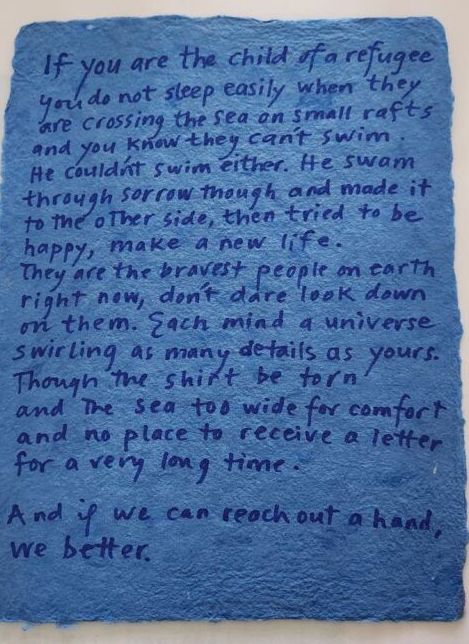 If you are the child of a refugee
you do not sleep easily when they
are crossing the sea on small rafts
and you know they can't swim.
He couldn't swim either. He swam
through sorrow though and made it
to the other side, then tried to be
happy, make a new life.
They are the bravest people on earth
right now, don't dare look down
on them. Each mind a universe
swirling as many details as yours.
Though the shirt be torn
and The sea too wide for comfort
and no place to receive a letter
for a very long time.
And if we can reach out a hand,
we better.